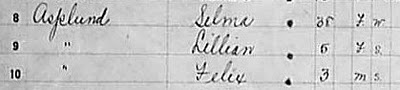 8 Asplund Selma 38 F. W.
9 " Lillian 5 F. S.
10 " Felix 3 m S.